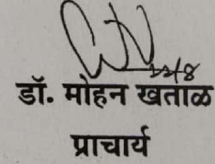 डॉ. मोहन खताळ
प्राचार्य